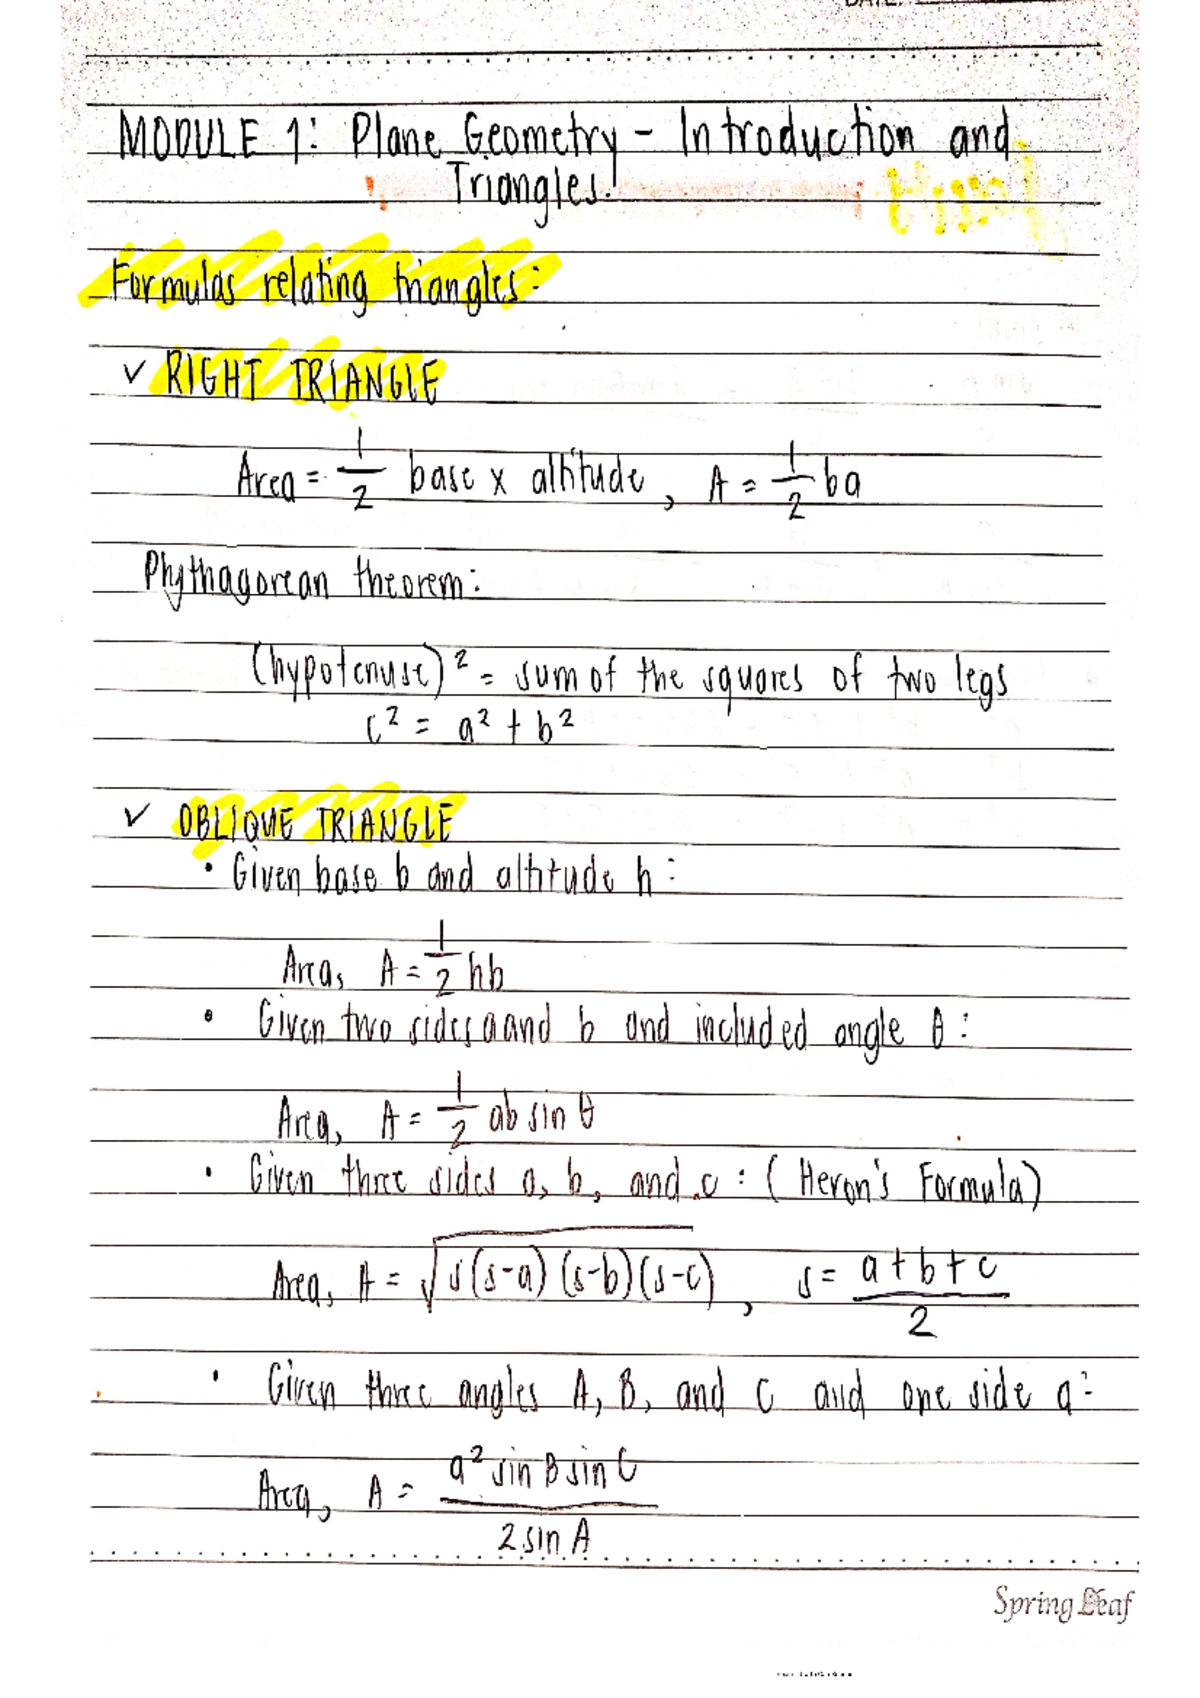 DATE:
MODULE 1: Plane Geometry - Introduction and
Triangles!
Formulas relating triangles:
✓ RIGHT TRIANGLE
Area = 1/2 base x altitude, A = 1/2 ba
Phythagorean theorem:
(hypotenuse)² = sum of the squares of two legs
c² = a² + b²
✓ OBLIQUE TRIANGLE
• Given base b and altitude h:
Area, A = 1/2 hb
• Given two sides a and b and included angle θ:
Area, A = 1/2 ab sin θ
• Given three sides a, b, and c: (Heron's Formula)
Area, A = √s(s-a)(s-b)(s-c), s = a+b+c/2
• Given three angles A, B, and C and one side a:
Area, A = a² sin B sin C/2 sin A
Spring Leaf